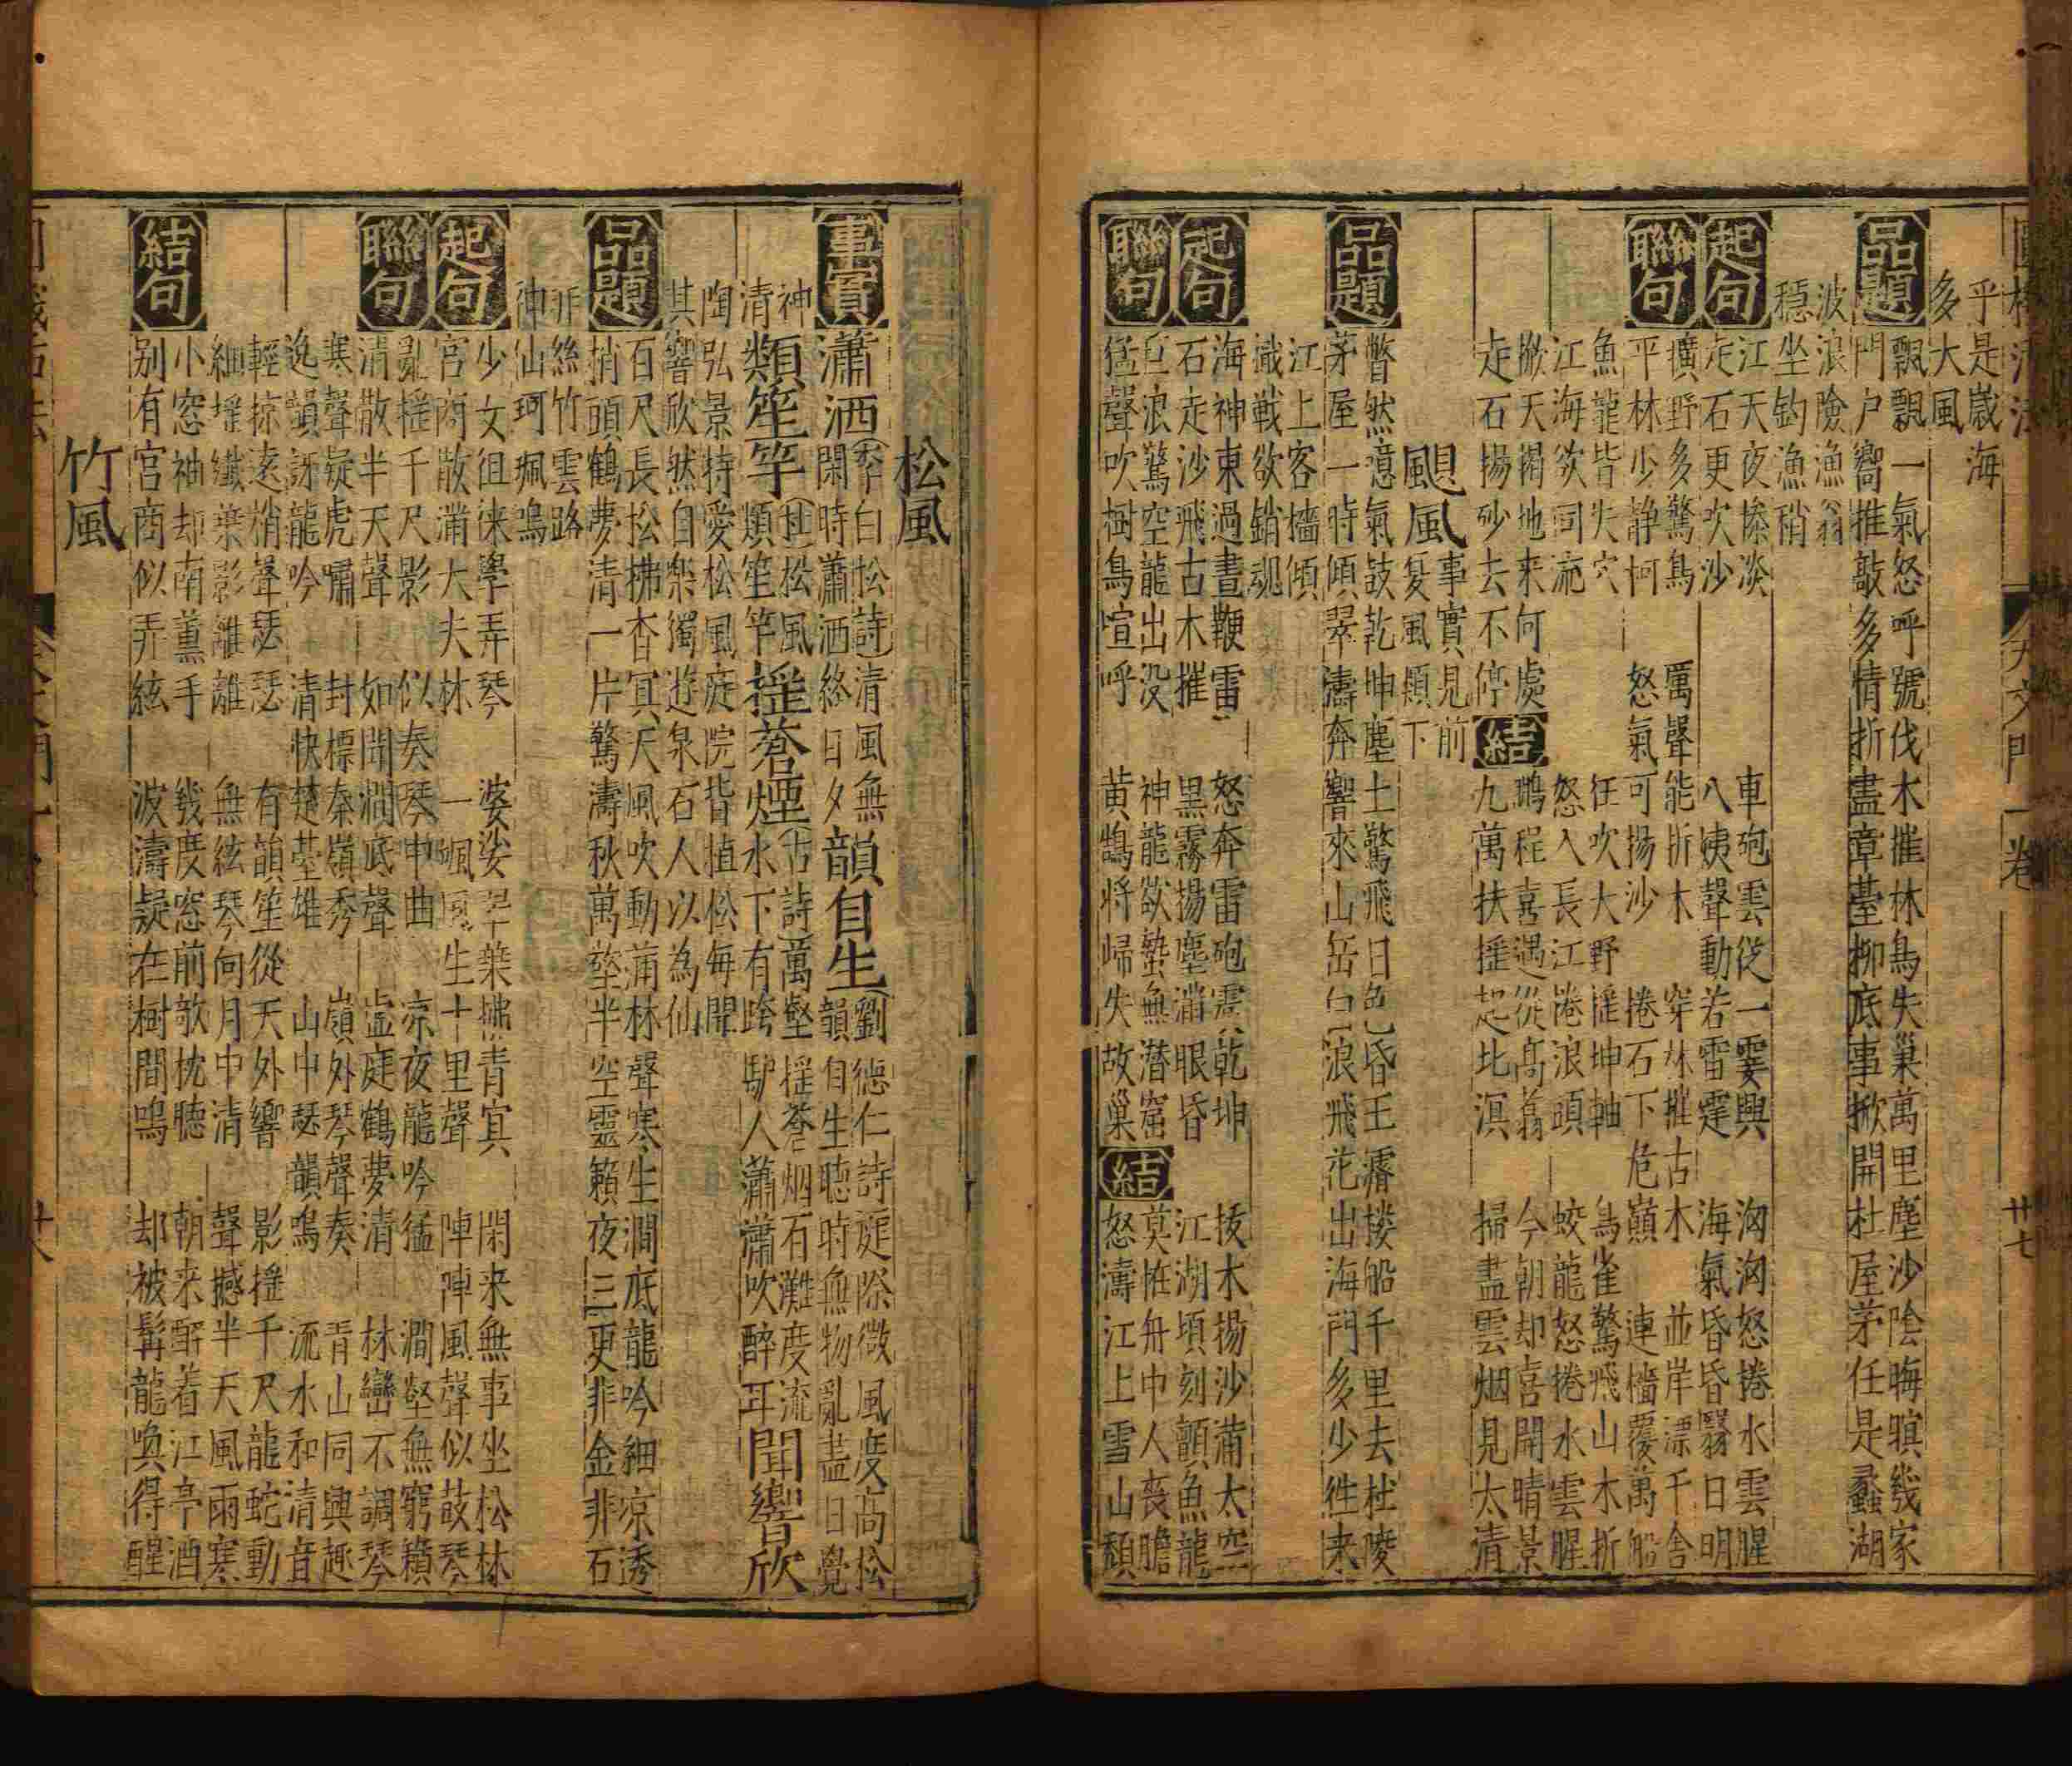 乎是歲海
多大風
品題
飄飄一氣怒呼號伐木摧林鳥失巢萬里塵沙陰晦暝幾家
門户嚮推敲多情折盡章䑓柳底事掀開杜屋茅任是蠡湖
波浪險漁翁
穩坐釣漁稍
起句
江天夜慘淡 車砲雲從一霎興 洶洶怒捲水雲腥
走石更吹沙 八姨聲動若雷霆 海氣昏昏翳日明
聯句
擴野多驚鳥 厲聲能折木 穿林摧古木 並岸漂千舎
平林少静柯 怒氣可揚沙 捲石下危巔 連檣覆萬船
魚龍皆失穴 狂吹大野揺坤軸 鳥雀驚飛山木折
江海欲同流 怒入長江捲浪頭 蛟龍怒捲水雲腥
掀天揭地来何處
走石揚砂去不停
結
鵬程喜遇從高翥 今朝却喜開晴景
九萬扶揺起比溟 掃盡雲烟見太清
颶風
事實見前
夏風類下
品題
瞥然意氣鼓乾坤塵土驚飛日色昏王濬楼船千里去杜陵
茅屋一時傾翠濤奔響來山岳白浪飛花出海門多少徃来
江上客檣傾
檝戦欲銷魂
起句
海神東過晝鞭雷 怒奔雷砲震乾坤 拔木揚沙蒲太空
石走沙飛古木摧 黒霧揚塵滿眼昏 江湖頃刻顫魚龍
聯句
巨浪驚空龍出没 神龍欲蟄無潜窟
猛聲吹樹鳥喧呼 黄鵠将歸失故巢
結
莫恠舟中人喪膽
怒濤江上雪山頽
松風
事實
瀟洒
李白松詩清風無
閑時瀟洒終日夕
韻自生
劉德仁詩庭除微風度高松
韻自生聴時無物亂盡日覺
神
清
類笙竽
杜松風
類笙竽
揺蒼煙
古詩萬壑揺蒼烟石灘度流
水下有跨馿人瀟瀟吹醉耳
聞響欣
陶弘景特愛松風庭院皆植松毎聞
其響欣然自樂獨遊泉石人以為仙
品題
百尺長松拂杳冥天風吹動蒲林聲寒生澗底龍吟細凉透
捎頭鶴夢清一片驚濤秋萬壑半空靈籟夜三更非金非石
非絲竹雲路
神仙珂珮鳴
起句
少女徂徠學弄琴 婆娑翠葉拂青宜 閑来無事坐松林
宮商散蒲大夫林 一颯風生十里聲 陣陣風聲似鼓琴
聯句
亂揺千尺影 似奏琴中曲 凉夜龍吟猛 澗壑無窮籟
清散半天聲 如聞澗底聲 虚庭鶴夢清 林巒不調琴
寒聲疑虎嘯 封標秦嶺秀 嶺外琴聲奏 青山同興趣
逸韻訝龍吟 清快楚䑓雄 山中瑟韻鳴 流水和清音
輕掠遠梢聲瑟瑟 有韻笙從天外響 影揺千尺龍蛇動
細揺纎葉影離離 無絃琴向月中清 聲撼半天風雨寒
結句
小窓袖却南薫手 幾度窓前欹枕聴 朝来醉着江亭酒
别有宫商似弄絃 波濤疑在樹間鳴 却被髯龍喚得醒
竹風